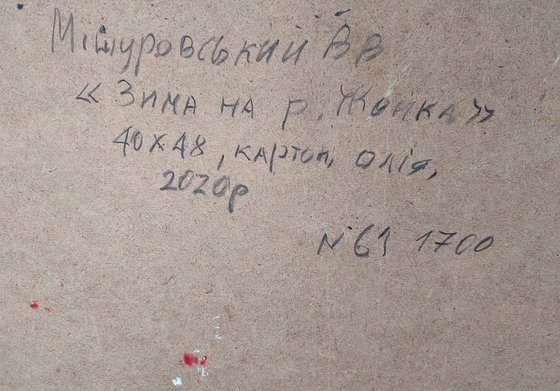 Мішуровський В В
« Зима на р. Жонка»
40х48, картон, олія,
2020р
N 61 1700